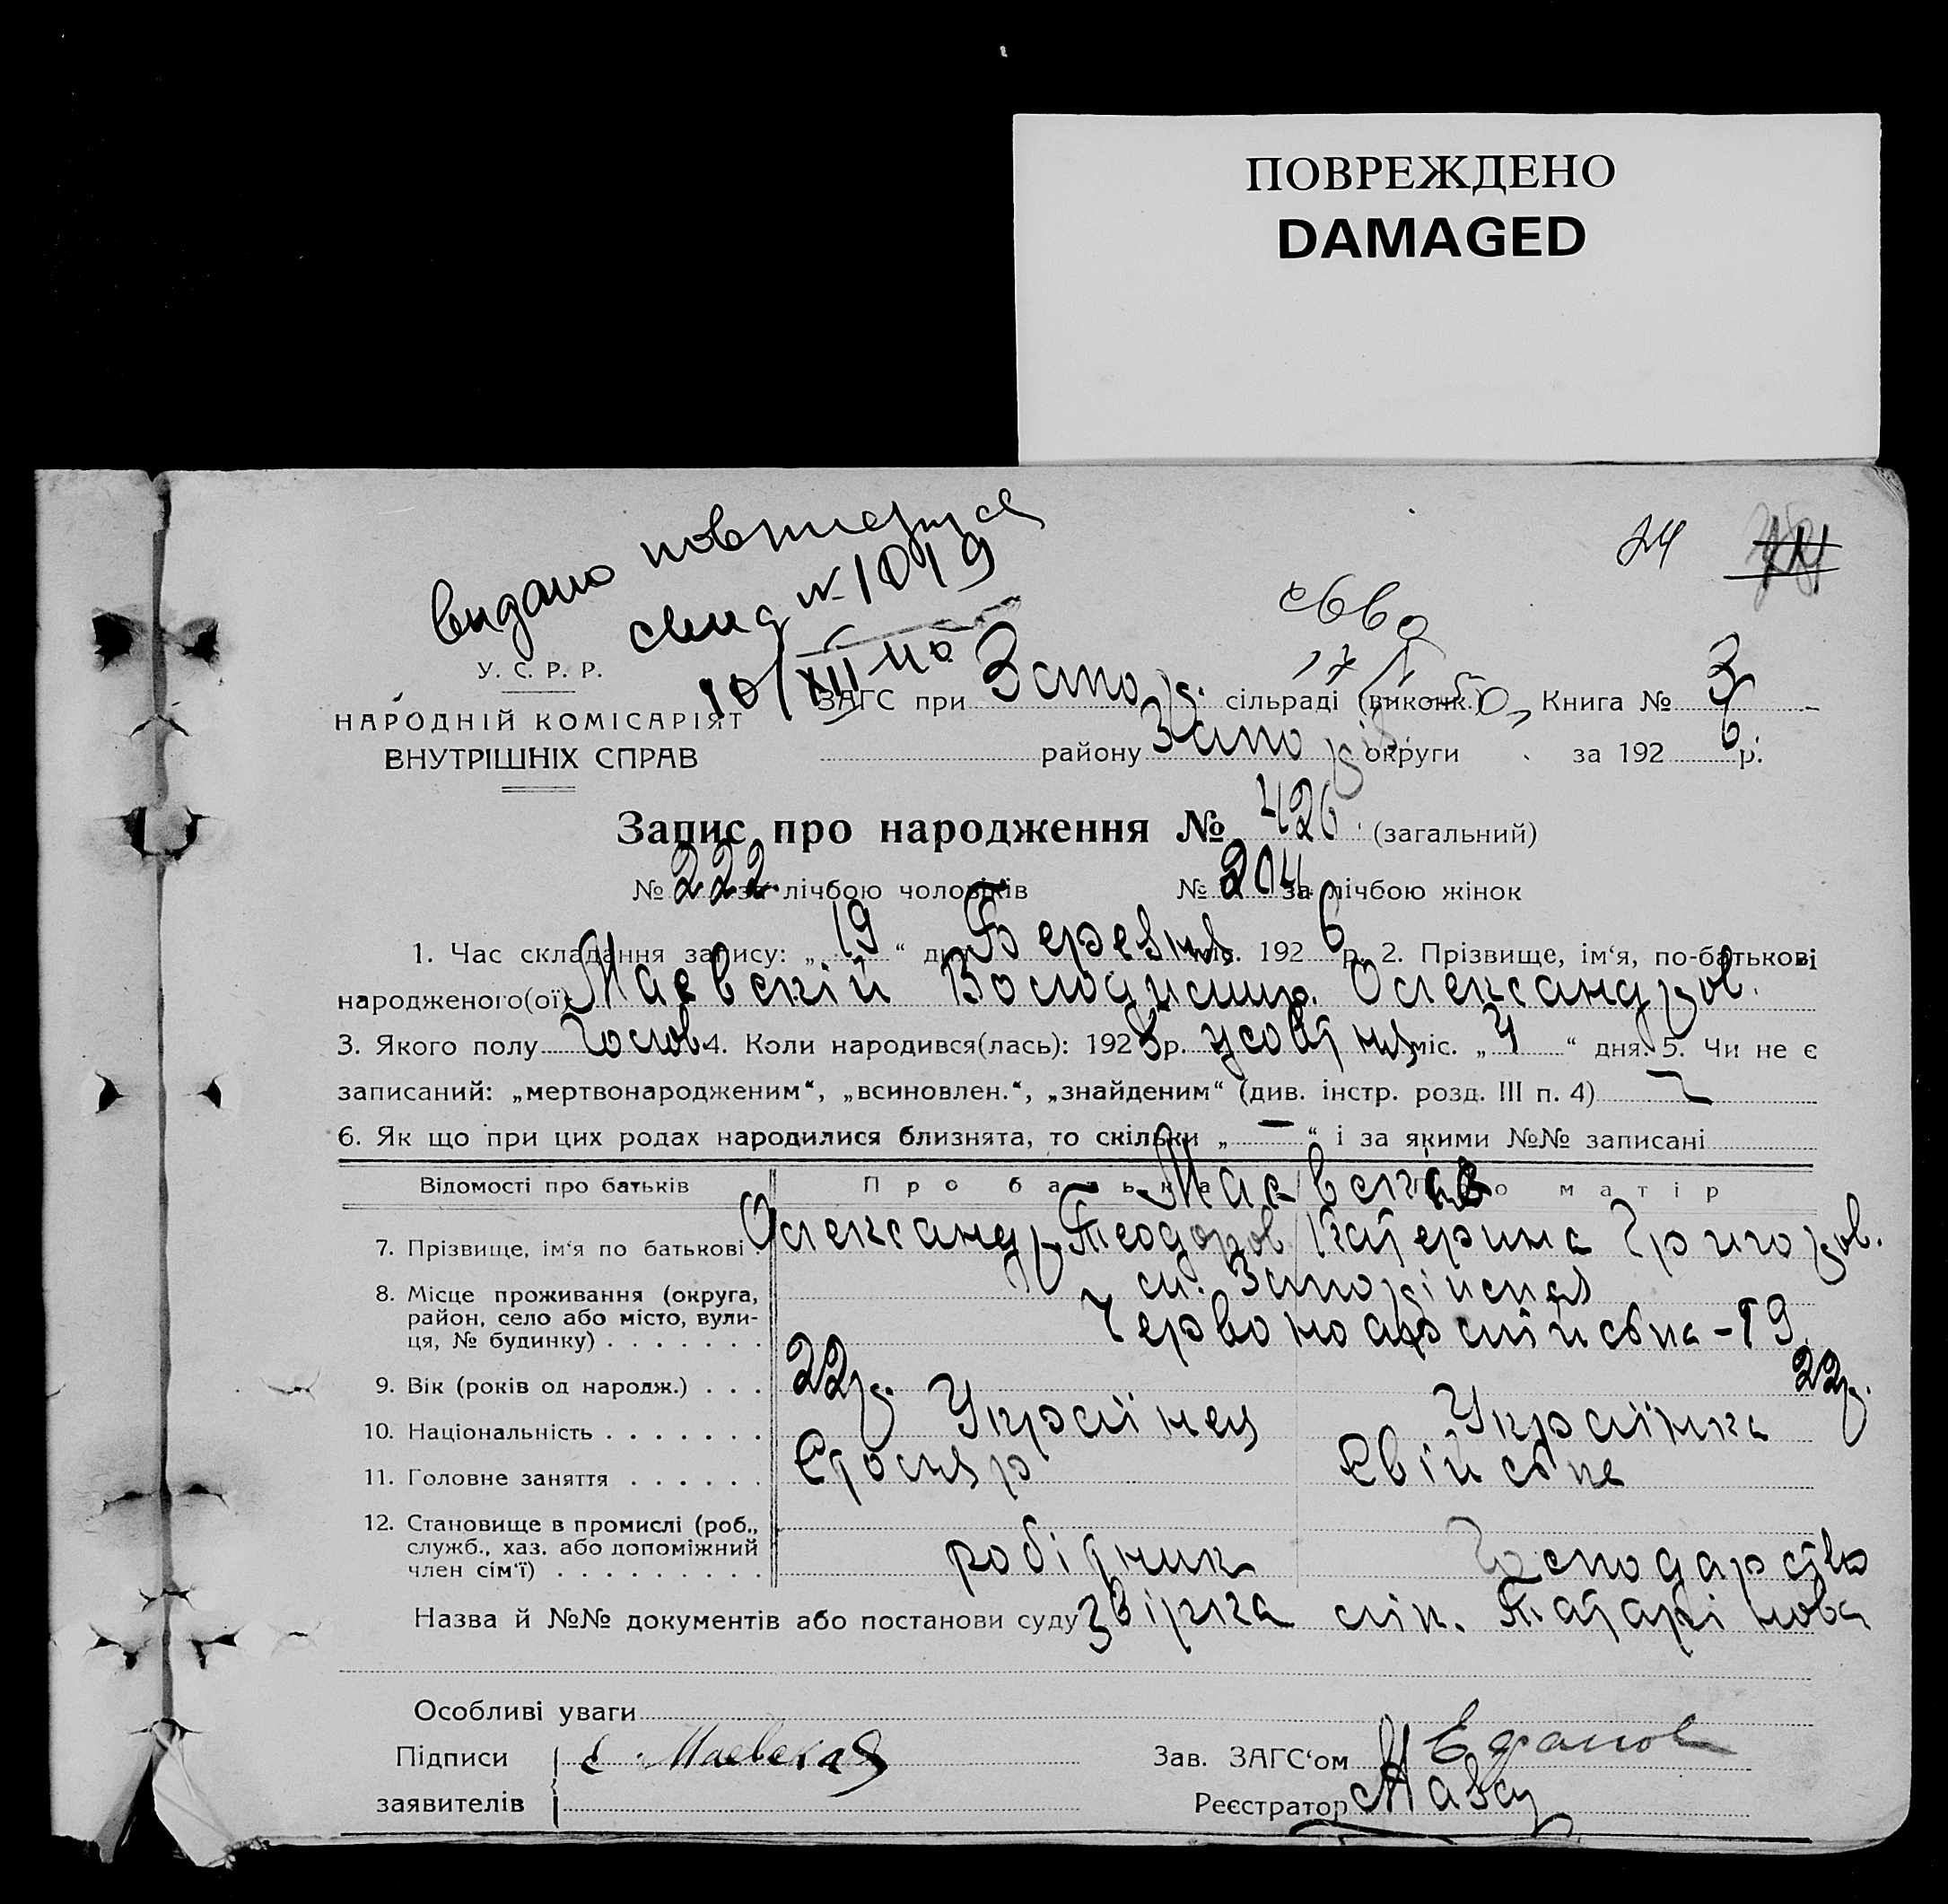 ПОВРЕЖДЕНО
DAMAGED
24
видано повторне
свид № 1019
10/XII 40
У. С. Р. Р.
НАРОДНІЙ КОМІСАРІЯТ
ВНУТРІШНІХ СПРАВ
ЗАГС при Запор. сільраді (виконк.) Книга № 3
району Запоріз. округи за 1926 р.
Запис про народження № 426 (загальний)
№ 222 за лічбою чоловіків № 204 за лічбою жінок
1. Час складання запису: „19“ дня Березня міс. 1926 р. 2. Прізвище, ім‘я, по-батькові
народженого(ої) Маєвскій Володимир Олександров.
3. Якого полу Чолов. 4. Коли народився(лась): 1925 р. Жовтня міс. „4“ дня. 5. Чи не є
записаний: „мертвонародженим“, „всиновлен.“, „знайденим“ (див. інстр. розд. III п. 4)
6. Як що при цих родах народилися близнята, то скільки „—“ і за якими №№ записані
Відомості про батьків Про батька Про матір
Маєвски
7. Прізвище, ім‘я по батькові Олександр Теодоров Катерина Григоров.
8. Місце проживання (округа, район, село або місто, вулиця, № будинку) м. Запоріжжя
Червоноармійська - 19
9. Вік (років од народж.) 22 р. 22 р.
10. Національність Українец Українка
11. Головне заняття Столяр Хатня
12. Становище в промислі (роб., служб., хаз. або допоміжний член сім‘ї) робітник Господарство
Назва й №№ документів або постанови суду звірка
Особливі уваги
Підписи Е. Маевская Зав. ЗАГС‘ом
заявителів Реєстратор